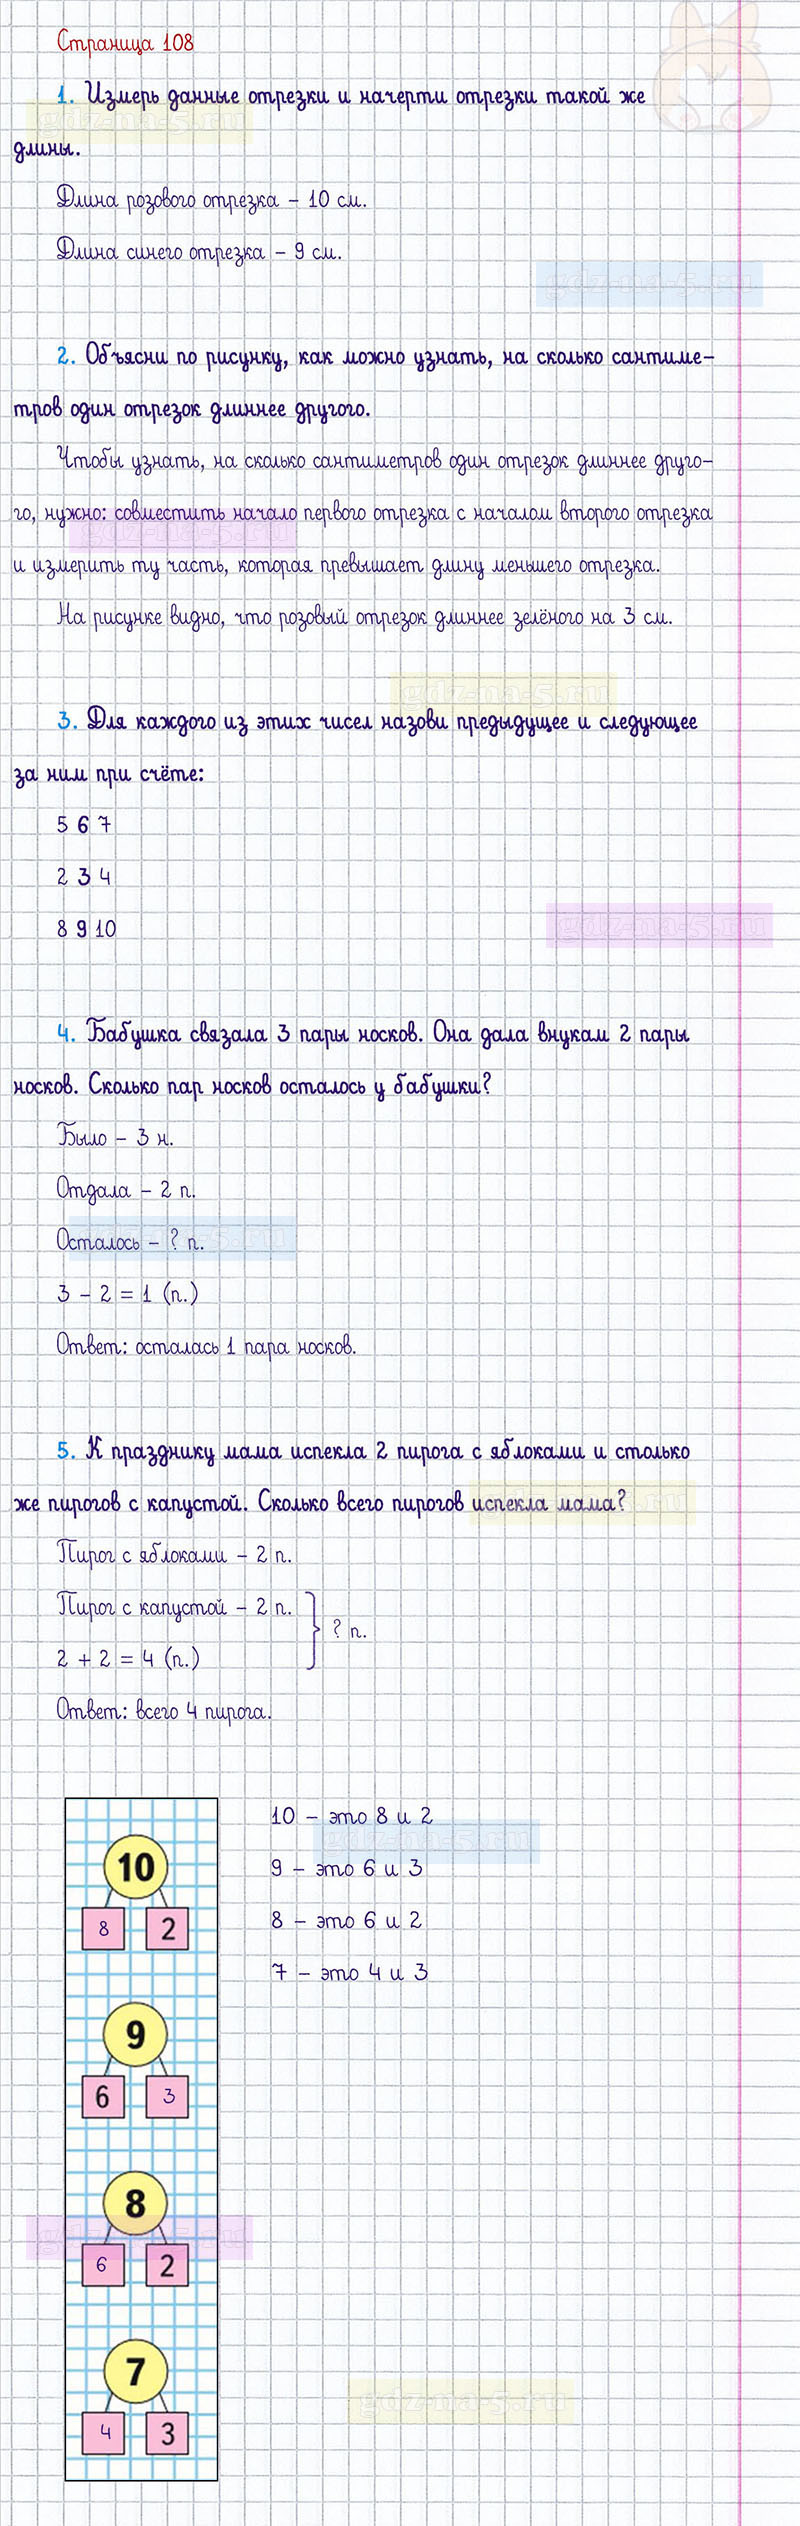 Страница 108
1. Измерь данные отрезки и начерти отрезки такой же
gdz-na-5.ru
длины.
Длина розового отрезка – 10 см.
Длина синего отрезка – 9 см.
gdz-na-5.ru
2. Объясни по рисунку, как можно узнать, на сколько сантиме–
тров один отрезок длиннее другого.
Чтобы узнать, на сколько сантиметров один отрезок длиннее друго–
го, нужно: совместить начало первого отрезка с началом второго отрезка
gdz-na-5.ru
и измерить ту часть, которая превышает длину меньшего отрезка.
На рисунке видно, что розовый отрезок длиннее зелёного на 3 см.
gdz-na-5.ru
3. Для каждого из этих чисел назови предыдущее и следующее
за ним при счёте:
5 6 7
2 3 4
8 9 10
gdz-na-5.ru
4. Бабушка связала 3 пары носков. Она дала внукам 2 пары
носков. Сколько пар носков осталось у бабушки?
Было – 3 н.
Отдала – 2 п.
Осталось – ? п.
gdz-na-5.ru
3 – 2 = 1 (п.)
Ответ: осталась 1 пара носков.
5. К празднику мама испекла 2 пирога с яблоками и столько
же пирогов с капустой. Сколько всего пирогов испекла мама?
gdz-na-5.ru
Пирог с яблоками – 2 п.
Пирог с капустой – 2 п.
? п.
2 + 2 = 4 (п.)
Ответ: всего 4 пирога.
10 – это 8 и 2
gdz-na-5.ru
9 – это 6 и 3
8 – это 6 и 2
7 – это 4 и 3
10
8 2
9
6 3
8
gdz-na-5.ru
6 2
7
4 3
gdz-na-5.ru